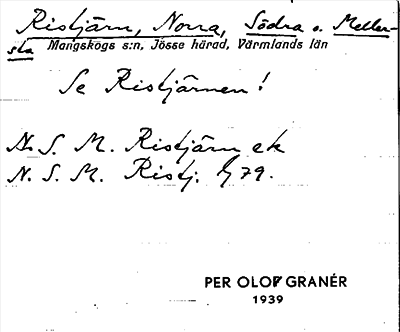 Ristjärn, Norra, Södra o. Meller-
sta Mangskogs s:n, Jösse härad, Värmlands län
Se Ristjärnen!
N. S. M. Ristjärn ek
N. S. M. Ristj. G 79.
PER OLOF GRANÉR
1939